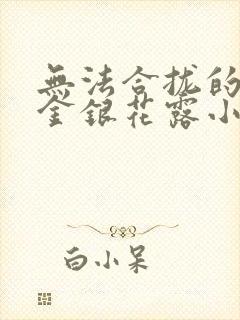 無法合拢的
金銀花露小
白小呆